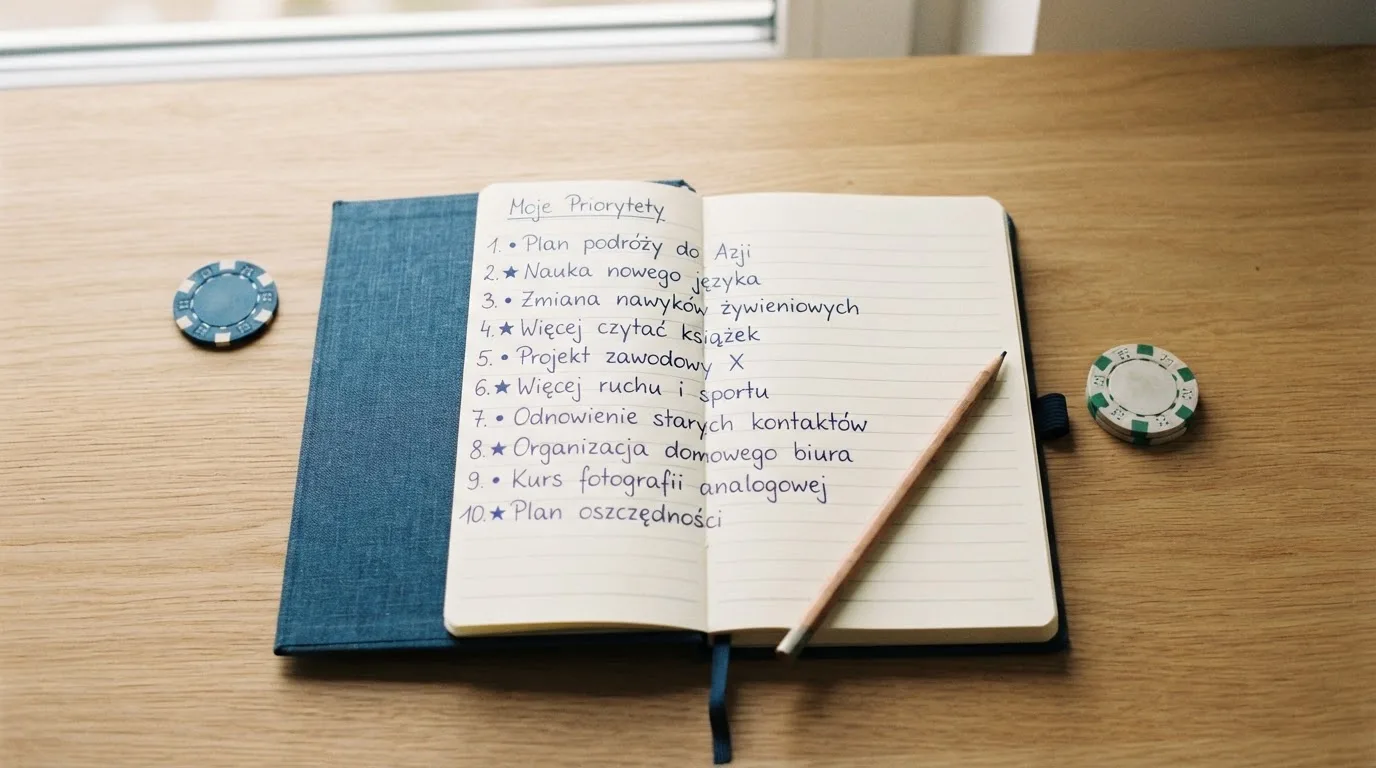 Moje Priorytety
1. • Plan podróży do Azji
2. ★ Nauka nowego języka
3. • Zmiana nawyków żywieniowych
4. ★ Więcej czytać książek
5. • Projekt zawodowy X
6. ★ Więcej ruchu i sportu
7. • Odnowienie starych kontaktów
8. ★ Organizacja domowego biura
9. • Kurs fotografii analogowej
10. ★ Plan oszczędności